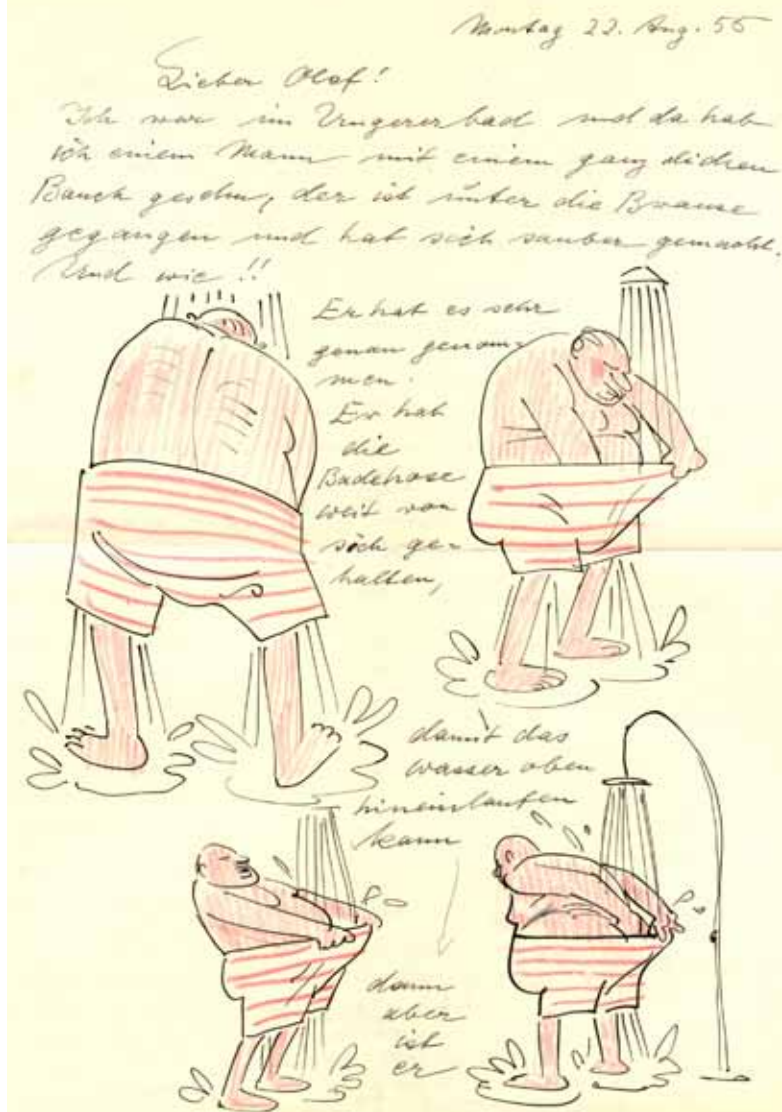 Montag 22. Aug. 55
Lieber Olaf!
Ich war im Ungererbad und da hab
ich einem Mann mit einem ganz dicken
Bauch gesehn, der ist unter die Brause
gegangen und hat sich sauber gemacht.
Und wie !!
Er hat es sehr
genau genom-
men.
Er hat
die
Badehose
weit von
sich ge-
halten,
damit das
wasser oben
hineinlaufen
kann
dann
aber
ist
er